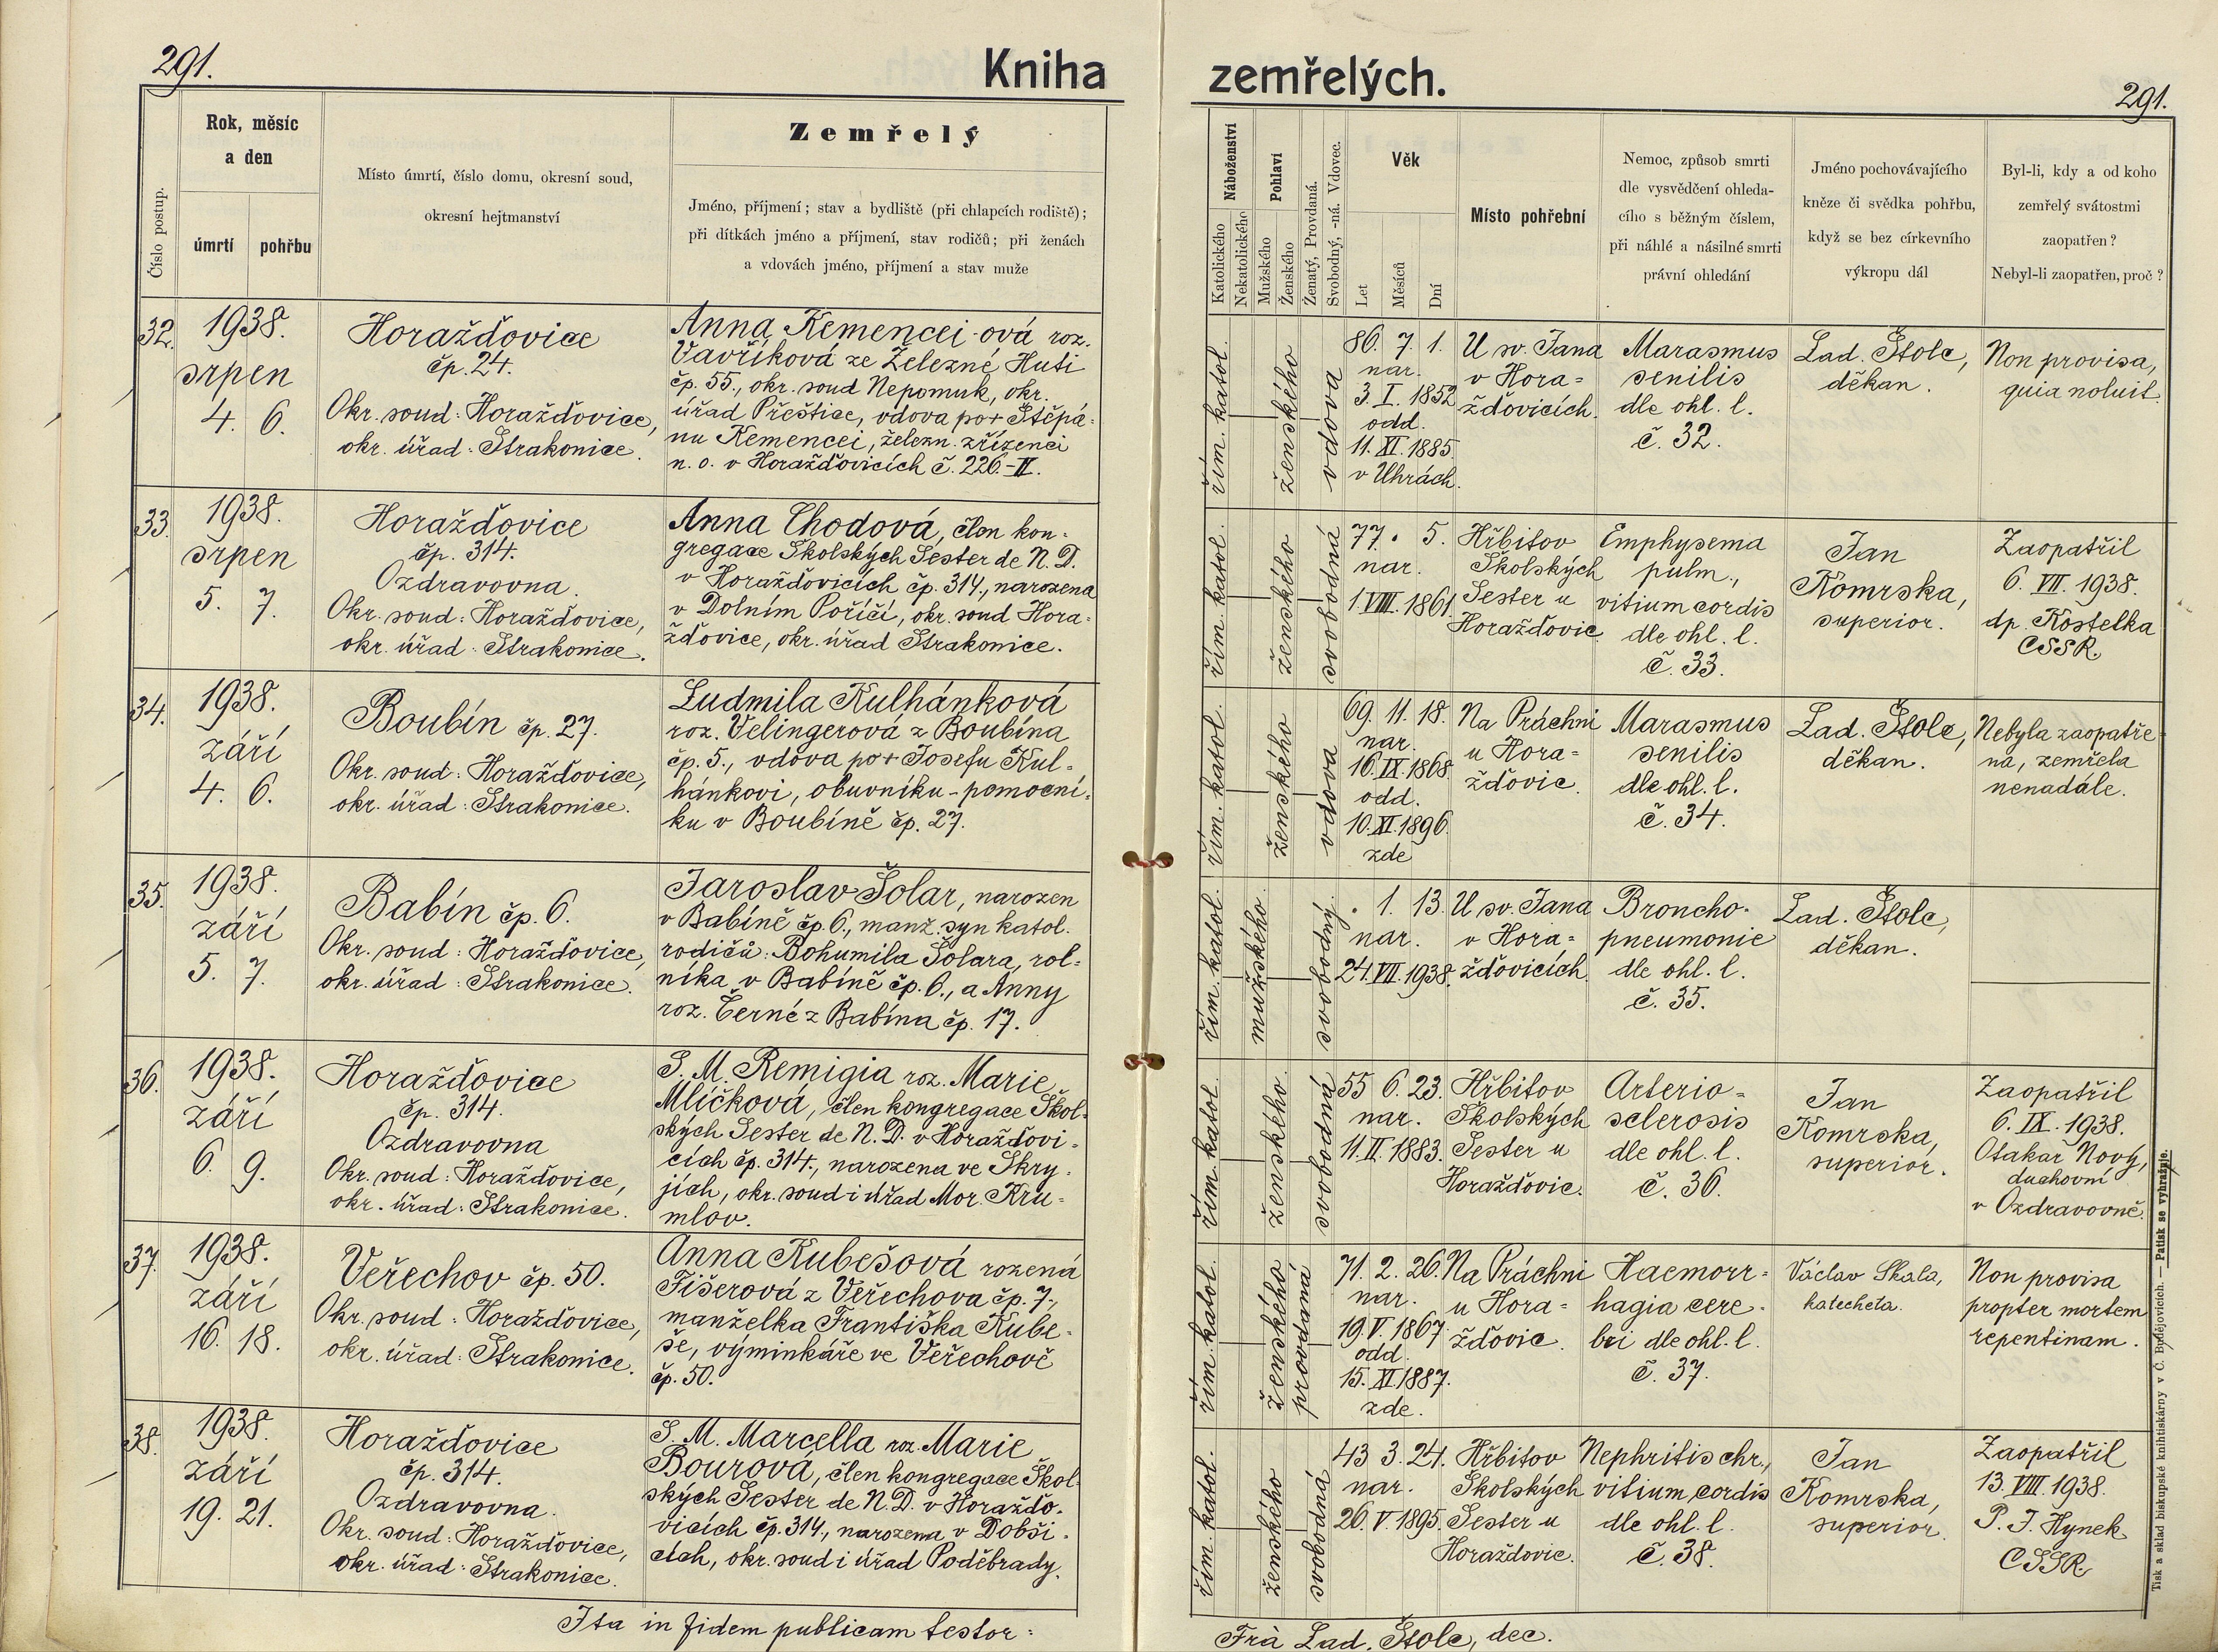 291.
Kniha
Číslo postup.
Rok, měsíc
a den
úmrtí
pohřbu
Místo úmrtí, číslo domu, okresní soud,
okresní hejtmanství
Zemřelý
Jméno, příjmení; stav a bydliště (při chlapcích rodiště);
při dítkách jméno a příjmení, stav rodičů; při ženách
a vdovách jméno, příjmení a stav muže
32.
1938.
srpen
4. 6.
Horažďovice
čp. 24.
Okr. soud: Horažďovice,
okr. úřad: Strakonice.
Anna Kemencei-ová roz.
Vavříková ze Železné Huti
čp. 55., okr. soud Nepomuk, okr.
úřad Přeštice, vdova po + Štěpá-
nu Kemencei, železn. zřízenci
n. o. v Horažďovicích č. 226.-II.
33.
1938.
srpen
5. 7.
Horažďovice
čp. 314.
Ozdravovna.
Okr. soud: Horažďovice,
okr. úřad: Strakonice.
Anna Chodová, člen kon-
gregace Školských Sester de N. D.
v Horažďovicích čp. 314., narozena
v Dolním Poříčí, okr. soud Hora-
žďovice, okr. úřad Strakonice.
34.
1938.
září
4. 6.
Boubín čp. 27.
Okr. soud: Horažďovice,
okr. úřad: Strakonice.
Ludmila Kulhánková
roz. Velingerová z Boubína
čp. 5., vdova po + Josefu Kul-
hánkovi, obuvníku-pomocní-
ku v Boubíně čp. 27.
35.
1938.
září
5. 7.
Babín čp. 6.
Okr. soud: Horažďovice,
okr. úřad: Strakonice.
Jaroslav Šolar, narozen
v Babíně čp. 6., manž. syn katol.
rodičů: Bohumila Šolara, rol-
níka v Babíně čp. 6., a Anny
roz. Černé z Babína čp. 17.
36.
1938.
září
6. 9.
Horažďovice
čp. 314.
Ozdravovna
Okr. soud: Horažďovice,
okr. úřad: Strakonice.
S. M. Remigia roz. Marie
Mlíčková, člen kongregace Škol-
ských Sester de N. D. v Horažďovi-
cích čp. 314., narozena ve Skry-
jích, okr. soud i úřad Mor. Kru-
mlov.
37.
1938.
září
16. 18.
Veřechov čp. 50.
Okr. soud: Horažďovice,
okr. úřad: Strakonice.
Anna Kubešová rozená
Fišerová z Veřechova čp. 7.,
manželka Františka Kube-
še, výminkáře ve Veřechově
čp. 50.
38.
1938.
září
19. 21.
Horažďovice
čp. 314.
Ozdravovna.
Okr. soud: Horažďovice,
okr. úřad: Strakonice.
S. M. Marcella roz. Marie
Bourová, člen kongregace Škol-
ských Sester de N. D. v Horažďo-
vicích čp. 314., narozena v Dobši-
cích, okr. soud i úřad Poděbrady.
Ita in fidem publicam testor:
zemřelých.
291.
Náboženství
Katolického
Nekatolického
Pohlaví
Mužského
Ženského
Ženatý, Provdaná.
Svobodný, -ná. Vdovec.
Věk
Let
Měsíců
Dní
Místo pohřební
Nemoc, způsob smrti
dle vysvědčení ohleda-
cího s běžným číslem,
při náhlé a násilné smrti
právní ohledání
Jméno pochovávajícího
kněze či svědka pohřbu,
když se bez církevního
výkropu dál
Byl-li, kdy a od koho
zemřelý svátostmi
zaopatřen?
Nebyl-li zaopatřen, proč?
řím. katol.
ženského
vdova
86. 7. 1.
nar.
3. I. 1852
odd.
11. XI. 1885.
v Uhrách.
U sv. Jana
v Hora-
žďovicích.
Marasmus
senilis
dle ohl. l.
č. 32.
Lad. Štolc,
děkan.
Non provisa,
quia noluit.
řím. katol.
ženského
svobodná
77. . 5.
nar.
1. VIII. 1861.
Hřbitov
Školských
Sester u
Horažďovic.
Emphysema
pulm.,
vitium cordis
dle ohl. l.
č. 33.
Jan
Komrska,
superior.
Zaopatřil
6. VII. 1938.
dp. Kostelka
CSSR.
řím. katol.
ženského
vdova
69. 11. 18.
nar.
16. IX. 1868.
odd.
10. XI. 1896.
zde
Na Práchni
u Hora-
žďovic.
Marasmus
senilis
dle ohl. l.
č. 34.
Lad. Štolc,
děkan.
Nebyla zaopatře-
na, zemřela
nenadále.
řím. katol.
mužského
svobodný.
. 1. 13.
nar.
24. VII. 1938.
U sv. Jana
v Hora-
žďovicích.
Broncho-
pneumonie
dle ohl. l.
č. 35.
Lad. Štolc,
děkan.
řím. katol.
ženského
svobodná
55 6. 23.
nar.
11. II. 1883.
Hřbitov
Školských
Sester u
Horažďovic.
Arterio-
sclerosis
dle ohl. l.
č. 36.
Jan
Komrska,
superior.
Zaopatřil
6. IX. 1938.
Otakar Nový,
duchovní
v Ozdravovně.
řím. katol.
ženského
provdaná
71. 2. 26.
nar.
19. V. 1867.
odd.
15. XI 1887.
zde.
Na Práchni
u Hora-
žďovic.
Haemorr-
hagia cere-
bri dle ohl. l.
č. 37.
Václav Skala,
katecheta.
Non provisa
propter mortem
repentinam.
řím. katol.
ženského
svobodná
43 3. 24.
nar.
26. V. 1895.
Hřbitov
Školských
Sester u
Horažďovic.
Nephritis chr.,
vitium cordis
dle ohl. l.
č. 38.
Jan
Komrska,
superior.
Zaopatřil
13. VIII. 1938.
P. J. Hynek
CSSR.
Frá Lad. Štolc, dec.
Tisk a sklad biskupské knihtiskárny v Č. Budějovicích. — Patisk se vyhražuje.